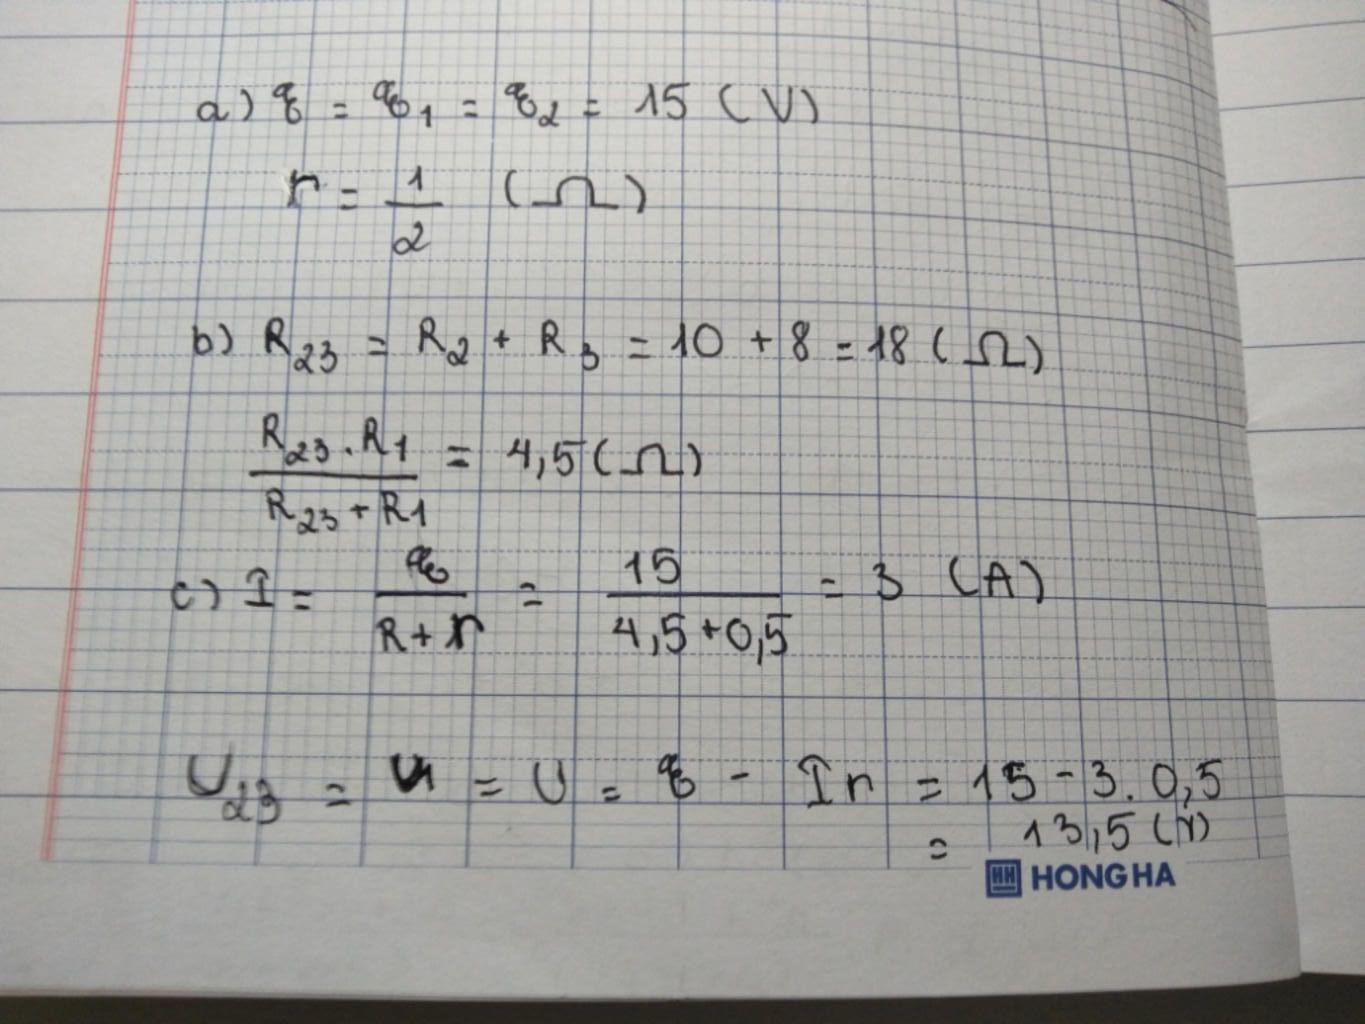 a) ξ = ξ₁ = ξ₂ = 15 (V)
r = 1/2 (Ω)
b) R₂₃ = R₂ + R₃ = 10 + 8 = 18 (Ω)
(R₂₃ . R1)/(R₂₃ + R1) = 4,5 (Ω)
c) I = ξ/(R + r) = 15/(4,5 + 0,5) = 3 (A)
U₂₃ = U₁ = U = ξ - Ir = 15 - 3. 0,5
= 13,5 (V)
HH HONG HA